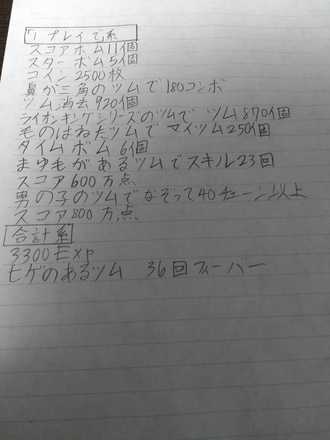 1プレイで系
スコアボム11個
スターボム5個
コイン2500枚
鼻が三角のツムで180コンボ
ツム消去920個
ライオンキングシリーズのツムで ツム870個
毛のはねたツムで マイツム250個
タイムボム 6個
まゆ毛があるツムでスキル23回
スコア600万点
男の子のツムでなぞって40チェーン以上
スコア800万点
合計系
3300Exp
ヒゲのあるツム 36回フィーバー